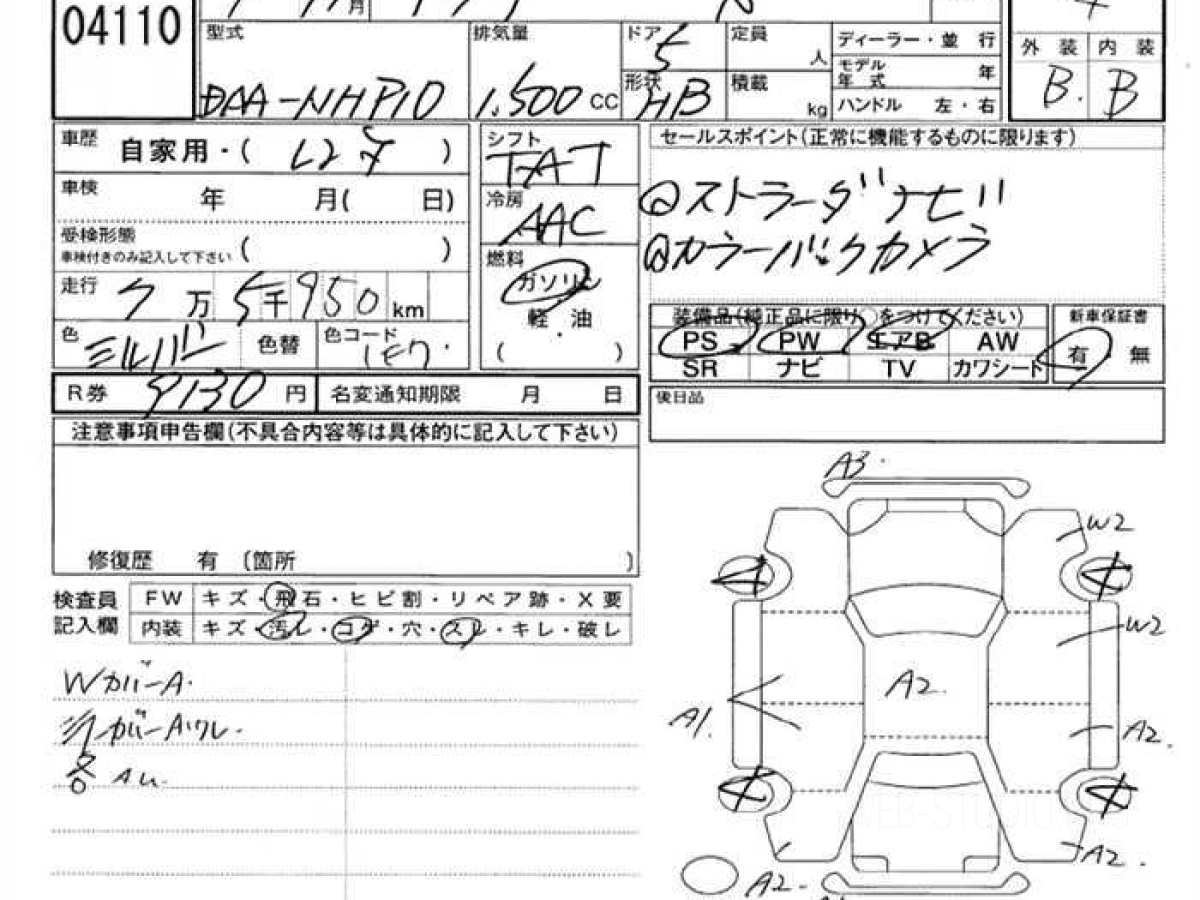 04110
月
型式
DAA-NHP10
排気量
1.500 CC
ドア 5
形状 HB
定員
人
積載
kg
ディーラー・並 行
モデル年式 年
ハンドル 左・右
外 装 内 装
B. B
車歴
自家用・( レンタ )
車検
年 月( 日)
受検形態
車検付きのみ記入して下さい ( )
走行 7 万 5 千 950 km
色 シルバー 色替 色コード 1F7
R券 9130 円 名変通知期限 月 日
シフト
FAT
冷房
AAC
燃料
ガソリン
軽・油
( )
セールスポイント(正常に機能するものに限ります)
ストラーダナビ!!
カラーバックカメラ
装備品(純正品に限り○をつけてください)
PS PW エアB AW
SR ナビ TV カワシート
新車保証書
有 無
後日品
注意事項申告欄(不具合内容等は具体的に記入して下さい)
修復歴 有 〔箇所 〕
検査員記入欄
FW キズ・飛石・ヒビ割・リペア跡・X要
内装 キズ・汚レ・コゲ・穴・スレ・キレ・破レ
WカバーA.
A3.
W2
W2
A2.
A1.
A2.
A2.
A2.